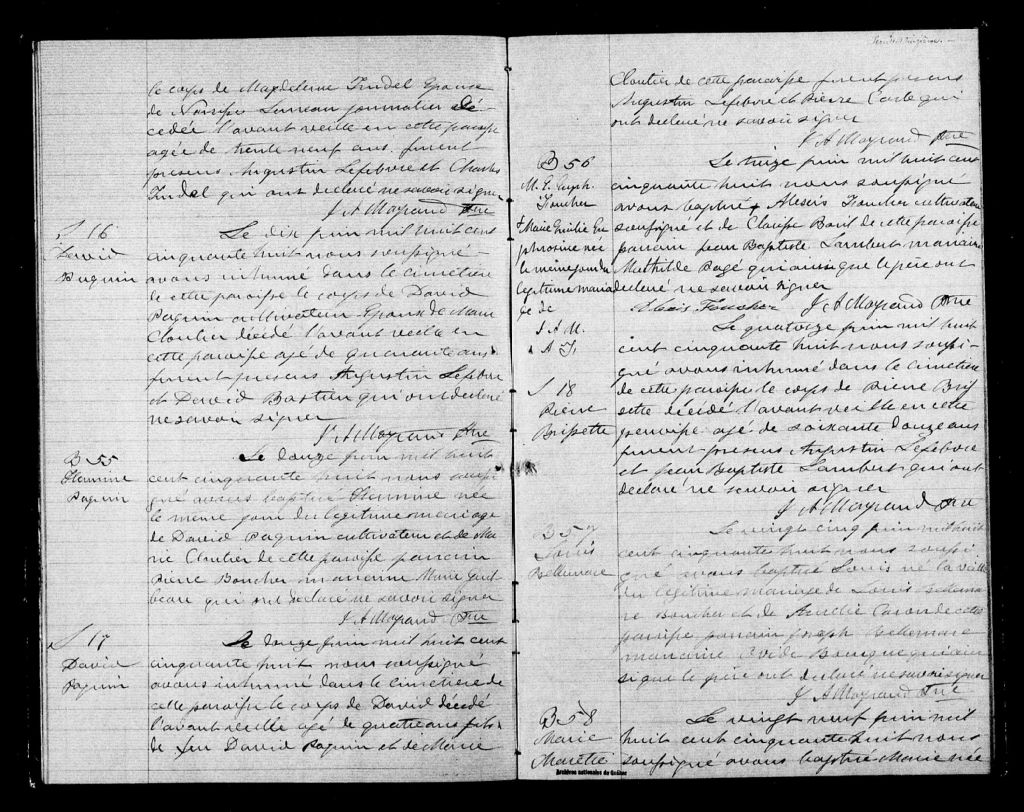 le corps de Magdeleine Trudel Epouse
de Narcisse Juneau journalier dé-
cedée l'avant veille en cette paroisse
agée de trente neuf ans. furent
presens Augustin Lefebvre et Charles
Trudel qui ont declaré ne savoir signer
J A Mayrand Ptre
S 16
David
Paquin
Le dix juin mil huit cent
cinquante huit nous soussigné
avons inhumé dans le cimetière
de cette paroisse le corps de David
Paquin cultivateur Epoux de Marie
Cloutier décédé l'avant veille en
cette paroisse agé de quarante ans
furent presens Augustin Lefebvre
et David Bastien qui ont declaré
ne savoir signer
J A Mayrand Ptre
B 55
Hermine
Paquin
Le douze juin mil huit
cent cinquante huit nous soussi
gné avons baptisé Hermine née
le même jour du legitime mariage
de David Paquin cultivateur et de Ma
rie Cloutier de cette paroisse parrain
Pierre Boucher marraine Marie
qui ont declaré ne savoir signer
J A Mayrand Ptre
S 17
David
Paquin
Le douze juin mil huit cent
cinquante huit nous soussigné
avons inhumé dans le cimetière de
cette paroisse le corps de David décédé
l'avant veille agé de quatre ans fils
de feu David Paquin et de Marie
Cloutier de cette paroisse furent presens
Augustin Lefebvre et Pierre qui
ont declaré ne savoir signer
J A Mayrand Ptre
B 56
M. E. Euph.
Foucher
+ Marie Emilie Eu
phrosine née
le meme jour du
legitime maria
ge de
J A M.
A F.
Le treize juin mil huit cent
cinquante huit nous soussigné
avons baptisé + Alexis Foucher cultivateur
soussigné et de Claire Baril de cette paroisse
parrain Jean Baptiste Lambert marraine
Mathilde Pagé qui ainsi que le père ont
declaré ne savoir signer
Alexis Foucher J A Mayrand Ptre
S 18
Pierre
Brissette
Le quatorze juin mil huit
cent cinquante huit nous soussi-
gné avons inhumé dans le cimetière
de cette paroisse le corps de Pierre Bris
sette décédé l'avant veille en cette
paroisse agé de soixante douze ans
furent presens Augustin Lefebvre
et Jean Baptiste Lambert qui ont
declaré ne savoir signer
J A Mayrand Ptre
B 57
Louis
Bellemare
Le vingt cinq juin mil huit
cent cinquante huit nous soussi
gné avons baptisé Louis né la veille
du legitime mariage de Louis Bellema
re Boucher et de Amélie Caron de cette
paroisse parrain Joseph Bellemare
marraine qui ain
si que le père ont declaré ne savoir signer
J A Mayrand Ptre
B 58
Marie
Le vingt neuf juin mil
huit cent cinquante huit nous
soussigné avons baptisé Marie née
Archives nationales du Québec